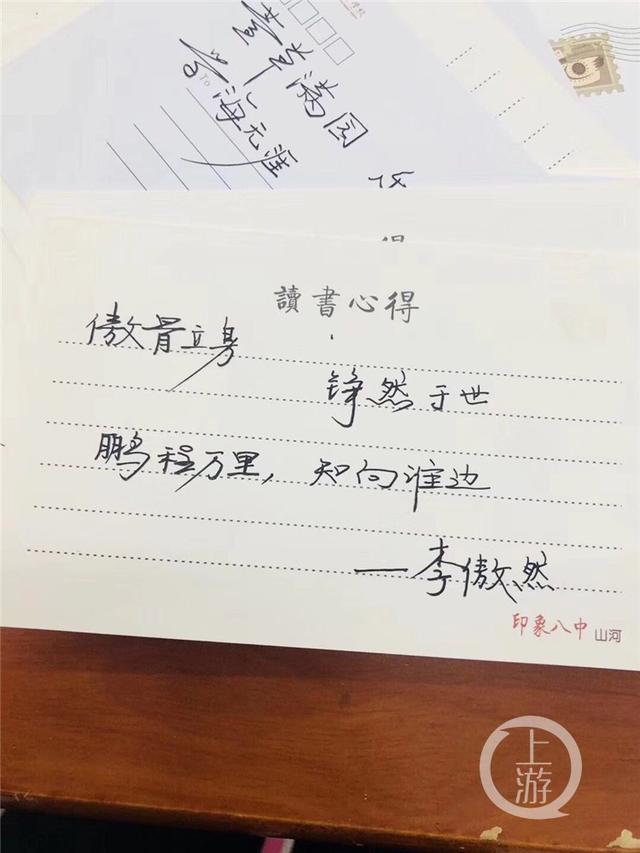 草满园
To
学海无涯
讀書心得
傲骨立身
铮然于世
鹏程万里，知向谁边
—李傲然
印象八中 山河
上游